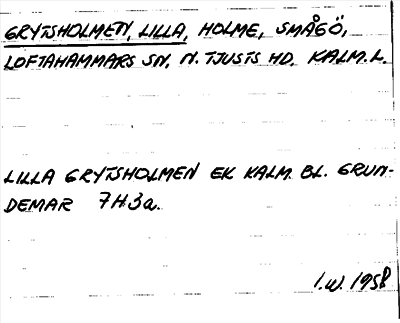 GRYTSHOLMEN, LILLA, HOLME, SMÅGÖ,
LOFTAHAMMARS SN. N. TJUSTS HD. KALM. L.
LILLA GRYTSHOLMEN EK KALM. BL. GRUN-
DEMAR 7H3a.
I.W. 1958